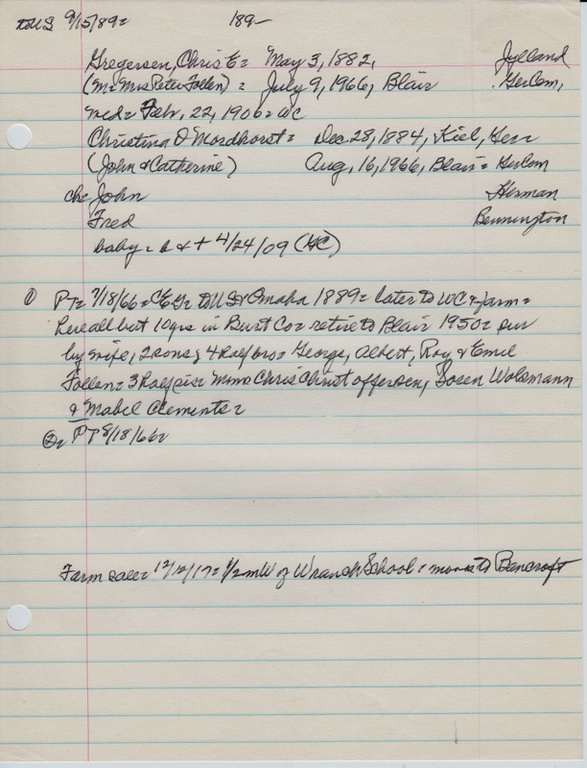 to US 9/15/89= 189-
Gregersen, Chris E= May 3, 1882, Jylland
(Mr Mrs Peter Follen) = July 9, 1966, Blair Gerlem,
med= Feb, 22, 1906= WC
Christina D Mordhorst= Dec 28, 1884, Kiel, Ger
(John & Catherine) Aug, 16, 1966, Blair= Gerlem
ch= John Herman
Fred Bennington
baby= b & + 4/24/09 (HC)
① PT= 7/18/66= CEG= to US & Omaha 1889= later to WC & farm=
here all but 10yrs in Burt Co= retire to Blair 1950= sur
by wife, 2 sons; 4 half bro= George, Albert, Roy & Emil
Follen= 3 half sis= Mmes Chris Christoffersen, Soren Wolsmann
& Mabel Clements=
②= PT 8/18/66=
Farm sale= 12/12/17= 1/2 mW of School= moves to Bancroft